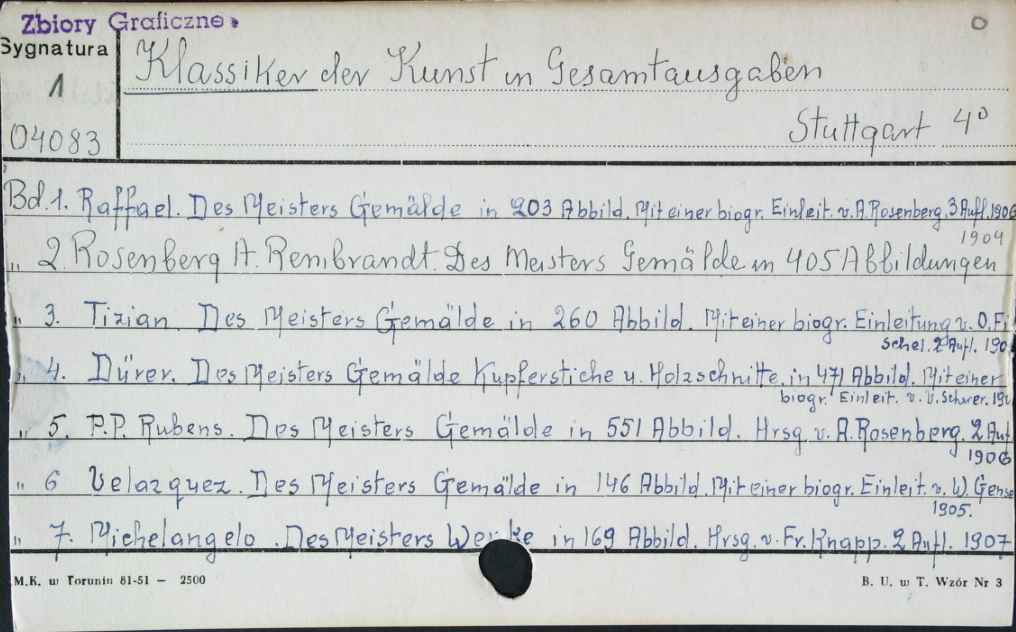 Zbiory Graficzne
0
Sygnatura
1
04083
Klassiker der Kunst in Gesamtausgaben
Stuttgart 4º
Bd. 1. Raffael. Des Meisters Gemälde in 203 Abbild. Mit einer biogr. Einleit. v. A. Rosenberg. 3 Aufl. 1906
1904
„ 2 Rosenberg A. Rembrandt. Des Meisters Gemälde in 405 Abbildungen
„ 3. Tizian. Des Meisters Gemälde in 260 Abbild. Mit einer biogr. Einleitung v. O. Fi
schel. 2 Aufl. 190
„ 4. Dürer. Des Meisters Gemälde Kupferstiche u. Holzschnitte. in 471 Abbild. Mit einer
biogr. Einleit. v. V. Scherer. 190
„ 5. P.P. Rubens. Des Meisters Gemälde in 551 Abbild. Hrsg. v. A. Rosenberg. 2 Auf
1906
„ 6 Velazquez. Des Meisters Gemälde in 146 Abbild. Mit einer biogr. Einleit. v. W. Gense
1905.
„ 7. Michelangelo. Des Meisters Werke in 169 Abbild. Hrsg. v. Fr. Knapp. 2 Aufl. 1907
M.K. w Toruniu 81-51 — 2500
B. U. w T. Wzór Nr 3